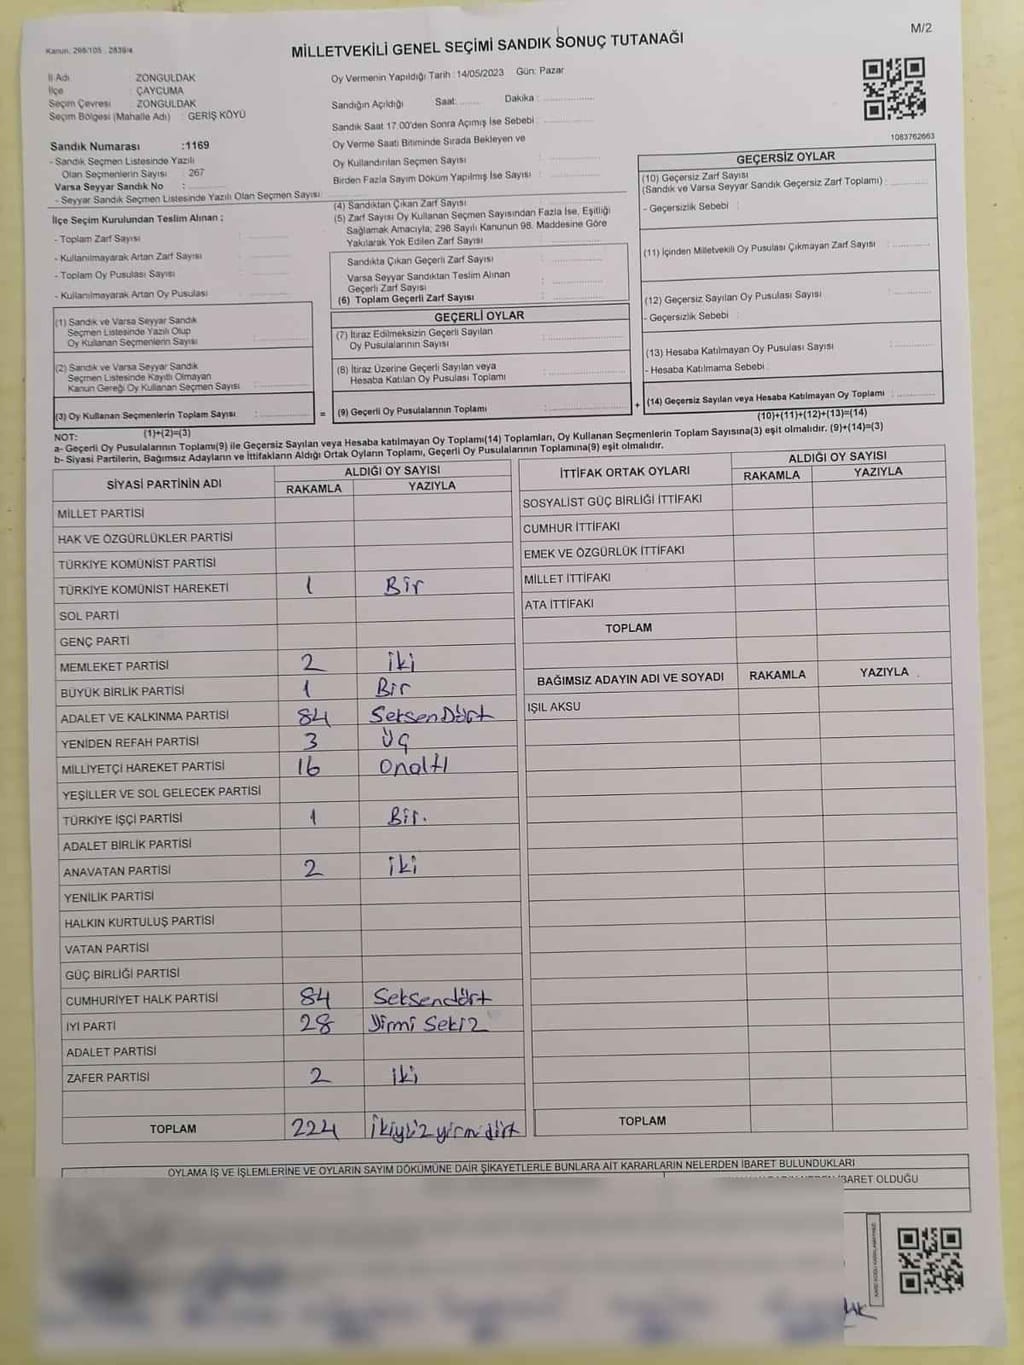 Kanun: 298/105 . 2839/4
M/2
MİLLETVEKİLİ GENEL SEÇİMİ SANDIK SONUÇ TUTANAĞI
İl Adı : ZONGULDAK
İlçe : ÇAYCUMA
Seçim Çevresi : ZONGULDAK
Seçim Bölgesi (Mahalle Adı) : GERİŞ KÖYÜ
Sandık Numarası :1169
- Sandık Seçmen Listesinde Yazılı
Olan Seçmenlerin Sayısı : 267
Varsa Seyyar Sandık No :
- Seyyar Sandık Seçmen Listesinde Yazılı Olan Seçmen Sayısı :
Oy Vermenin Yapıldığı Tarih : 14/05/2023 Gün: Pazar
Sandığın Açıldığı Saat: Dakika :
Sandık Saat 17.00'den Sonra Açımış İse Sebebi :
Oy Verme Saati Bitiminde Sırada Bekleyen ve
Oy Kullandırılan Seçmen Sayısı :
Birden Fazla Sayım Döküm Yapılmış İse Sayısı :
1083762663
İlçe Seçim Kurulundan Teslim Alınan ;
- Toplam Zarf Sayısı :
- Kullanılmayarak Artan Zarf Sayısı :
- Toplam Oy Pusulası Sayısı :
- Kullanılmayarak Artan Oy Pusulası :
(1) Sandık ve Varsa Seyyar Sandık
Seçmen Listesinde Yazılı Olup
Oy Kullanan Seçmenlerin Sayısı :
(2) Sandık ve Varsa Seyyar Sandık
Seçmen Listesinde Kayıtlı Olmayan
Kanun Gereği Oy Kullanan Seçmen Sayısı :
(3) Oy Kullanan Seçmenlerin Toplam Sayısı :
(1)+(2)=(3)
(4) Sandıktan Çıkan Zarf Sayısı :
(5) Zarf Sayısı Oy Kullanan Seçmen Sayısından Fazla İse, Eşitliği
Sağlamak Amacıyla; 298 Sayılı Kanunun 98. Maddesine Göre
Yakılarak Yok Edilen Zarf Sayısı :
Sandıkta Çıkan Geçerli Zarf Sayısı :
Varsa Seyyar Sandıktan Teslim Alınan
Geçerli Zarf Sayısı :
(6) Toplam Geçerli Zarf Sayısı :
GEÇERLİ OYLAR
(7) İtiraz Edilmeksizin Geçerli Sayılan
Oy Pusulalarının Sayısı :
(8) İtiraz Üzerine Geçerli Sayılan veya
Hesaba Katılan Oy Pusulası Toplamı :
= (9) Geçerli Oy Pusulalarının Toplamı :
GEÇERSİZ OYLAR
(10) Geçersiz Zarf Sayısı
(Sandık ve Varsa Seyyar Sandık Geçersiz Zarf Toplamı) :
- Geçersizlik Sebebi :
(11) İçinden Milletvekili Oy Pusulası Çıkmayan Zarf Sayısı :
(12) Geçersiz Sayılan Oy Pusulası Sayısı :
- Geçersizlik Sebebi :
(13) Hesaba Katılmayan Oy Pusulası Sayısı :
- Hesaba Katılmama Sebebi :
+ (14) Geçersiz Sayılan veya Hesaba Katılmayan Oy Toplamı :
(10)+(11)+(12)+(13)=(14)
NOT:
a- Geçerli Oy Pusulalarının Toplamı(9) ile Geçersiz Sayılan veya Hesaba katılmayan Oy Toplamı(14) Toplamları, Oy Kullanan Seçmenlerin Toplam Sayısına(3) eşit olmalıdır. (9)+(14)=(3)
b- Siyasi Partilerin, Bağımsız Adayların ve İttifakların Aldığı Ortak Oyların Toplamı, Geçerli Oy Pusulalarının Toplamına(9) eşit olmalıdır.
SİYASİ PARTİNİN ADI ALDIĞI OY SAYISI
RAKAMLA YAZIYLA
MİLLET PARTİSİ
HAK VE ÖZGÜRLÜKLER PARTİSİ
TÜRKİYE KOMÜNİST PARTİSİ
TÜRKİYE KOMÜNİST HAREKETİ 1 Bir
SOL PARTİ
GENÇ PARTİ
MEMLEKET PARTİSİ 2 iki
BÜYÜK BİRLİK PARTİSİ 1 Bir
ADALET VE KALKINMA PARTİSİ 84 SeksenDört
YENİDEN REFAH PARTİSİ 3 Üç
MİLLİYETÇİ HAREKET PARTİSİ 16 Onaltı
YEŞİLLER VE SOL GELECEK PARTİSİ
TÜRKİYE İŞÇİ PARTİSİ 1 Bir.
ADALET BİRLİK PARTİSİ
ANAVATAN PARTİSİ 2 iki
YENİLİK PARTİSİ
HALKIN KURTULUŞ PARTİSİ
VATAN PARTİSİ
GÜÇ BİRLİĞİ PARTİSİ
CUMHURİYET HALK PARTİSİ 84 Seksendört
İYİ PARTİ 28 Yirmi Sekiz
ADALET PARTİSİ
ZAFER PARTİSİ 2 iki
TOPLAM 224 ikiyüzyirmidört
İTTİFAK ORTAK OYLARI ALDIĞI OY SAYISI
RAKAMLA YAZIYLA
SOSYALİST GÜÇ BİRLİĞİ İTTİFAKI
CUMHUR İTTİFAKI
EMEK VE ÖZGÜRLÜK İTTİFAKI
MİLLET İTTİFAKI
ATA İTTİFAKI
TOPLAM
BAĞIMSIZ ADAYIN ADI VE SOYADI RAKAMLA YAZIYLA
IŞIL AKSU
TOPLAM
OYLAMA İŞ VE İŞLEMLERİNE VE OYLARIN SAYIM DÖKÜMÜNE DAİR ŞİKAYETLERLE BUNLARA AİT KARARLARIN NELERDEN İBARET BULUNDUKLARI
İBARET OLDUĞU